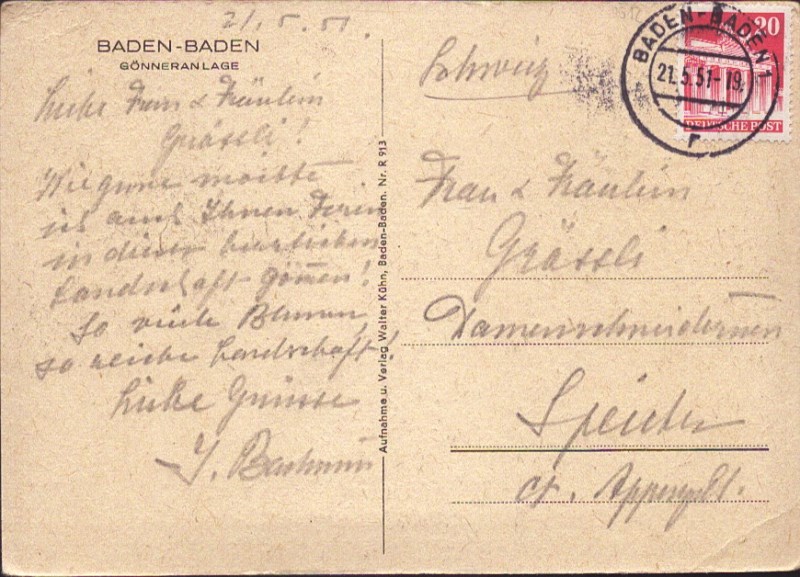 21.5.51.
BADEN-BADEN
GÖNNERANLAGE
Liebe Frau & Fräulein
Grässli!
Wie gerne möchte
ich auch Ihnen Ferien
in dieser herrlichen
Landschaft gönnen!
So viele Blumen,
so reiche Landschaft!
Liebe Grüsse
Aufnahme u. Verlag Walter Kühn, Baden-Baden. Nr. R 913
Schweiz
BADEN-BADEN 1
21.5.51-19
r
20
DEUTSCHE POST
Frau & Fräulein
Grässli
Damenschneiderinnen
Speicher
Ct. Appenzell.